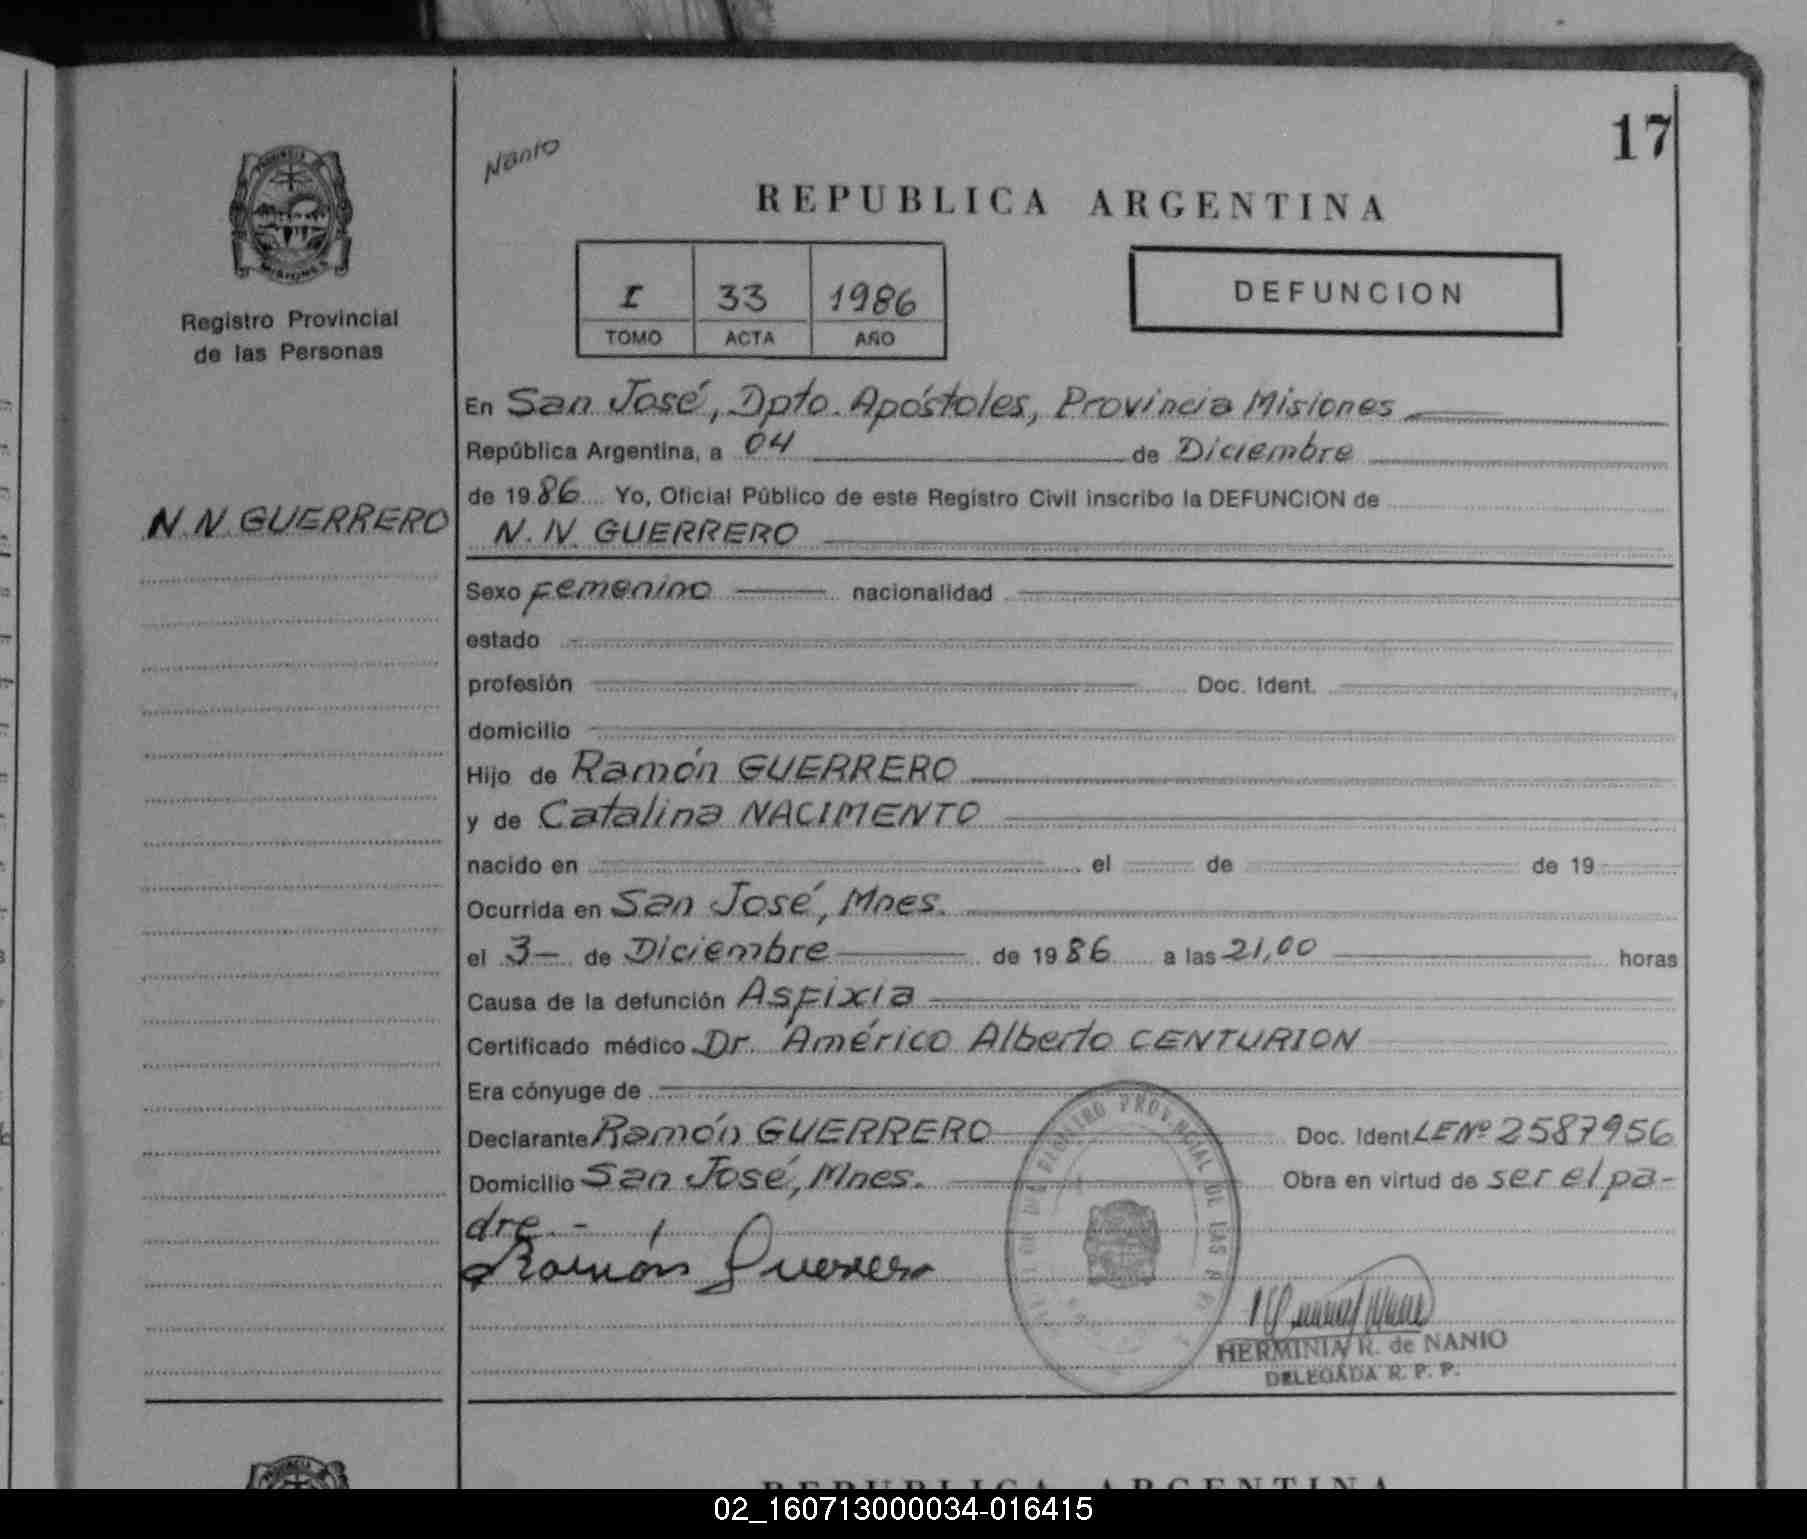 17
Nanio
REPUBLICA ARGENTINA
PROVINCIA DE
MISIONES
Registro Provincial
de las Personas
I 33 1986
TOMO ACTA AÑO
DEFUNCION
N. N. GUERRERO
En San José, Dpto. Apóstoles, Provincia Misiones
República Argentina, a 04 de Diciembre
de 1986 Yo, Oficial Público de este Registro Civil inscribo la DEFUNCION de
N. N. GUERRERO
Sexo femenino nacionalidad
estado
profesión Doc. Ident.
domicilio
Hijo de Ramón GUERRERO
y de Catalina NACIMENTO
nacido en el de de 19
Ocurrida en San José, Mnes.
el 3- de Diciembre de 1986 a las 21,00 horas
Causa de la defunción Asfixia
Certificado médico Dr. Américo Alberto CENTURION
Era cónyuge de
Declarante Ramón GUERRERO Doc. Ident LE Nº 2587956
Domicilio San José, Mnes. Obra en virtud de ser el pa-
dre.-
Ramón Guerrero
REGISTRO PROVINCIAL DE LAS
HERMINIA R. de NANIO
DELEGADA R. P. P.
REPUBLICA ARGENTINA
02_160713000034-016415